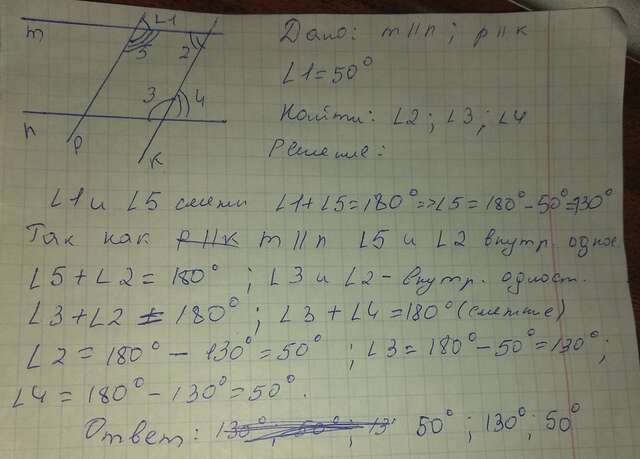 m
∠1
5
2
3
4
n
p
к
Дано: m || n ; p || к
∠1 = 50°
Найти: ∠2 ; ∠3 ; ∠4
Решение:
∠1 и ∠5 смежн ∠1+∠5=180° => ∠5=180°-50°=130°
Так как p || к m || n ∠5 и ∠2 внутр. однос
∠5+∠2 = 180° ; ∠3 и ∠2 - внутр. одност.
∠3+∠2 = 180° ; ∠3 + ∠4 = 180° (смежные)
∠2 = 180° - 130° = 50° ; ∠3 = 180° - 50° = 130° ;
∠4 = 180° - 130° = 50°.
Ответ: 130° ; 50° ; 13 50° ; 130° ; 50°